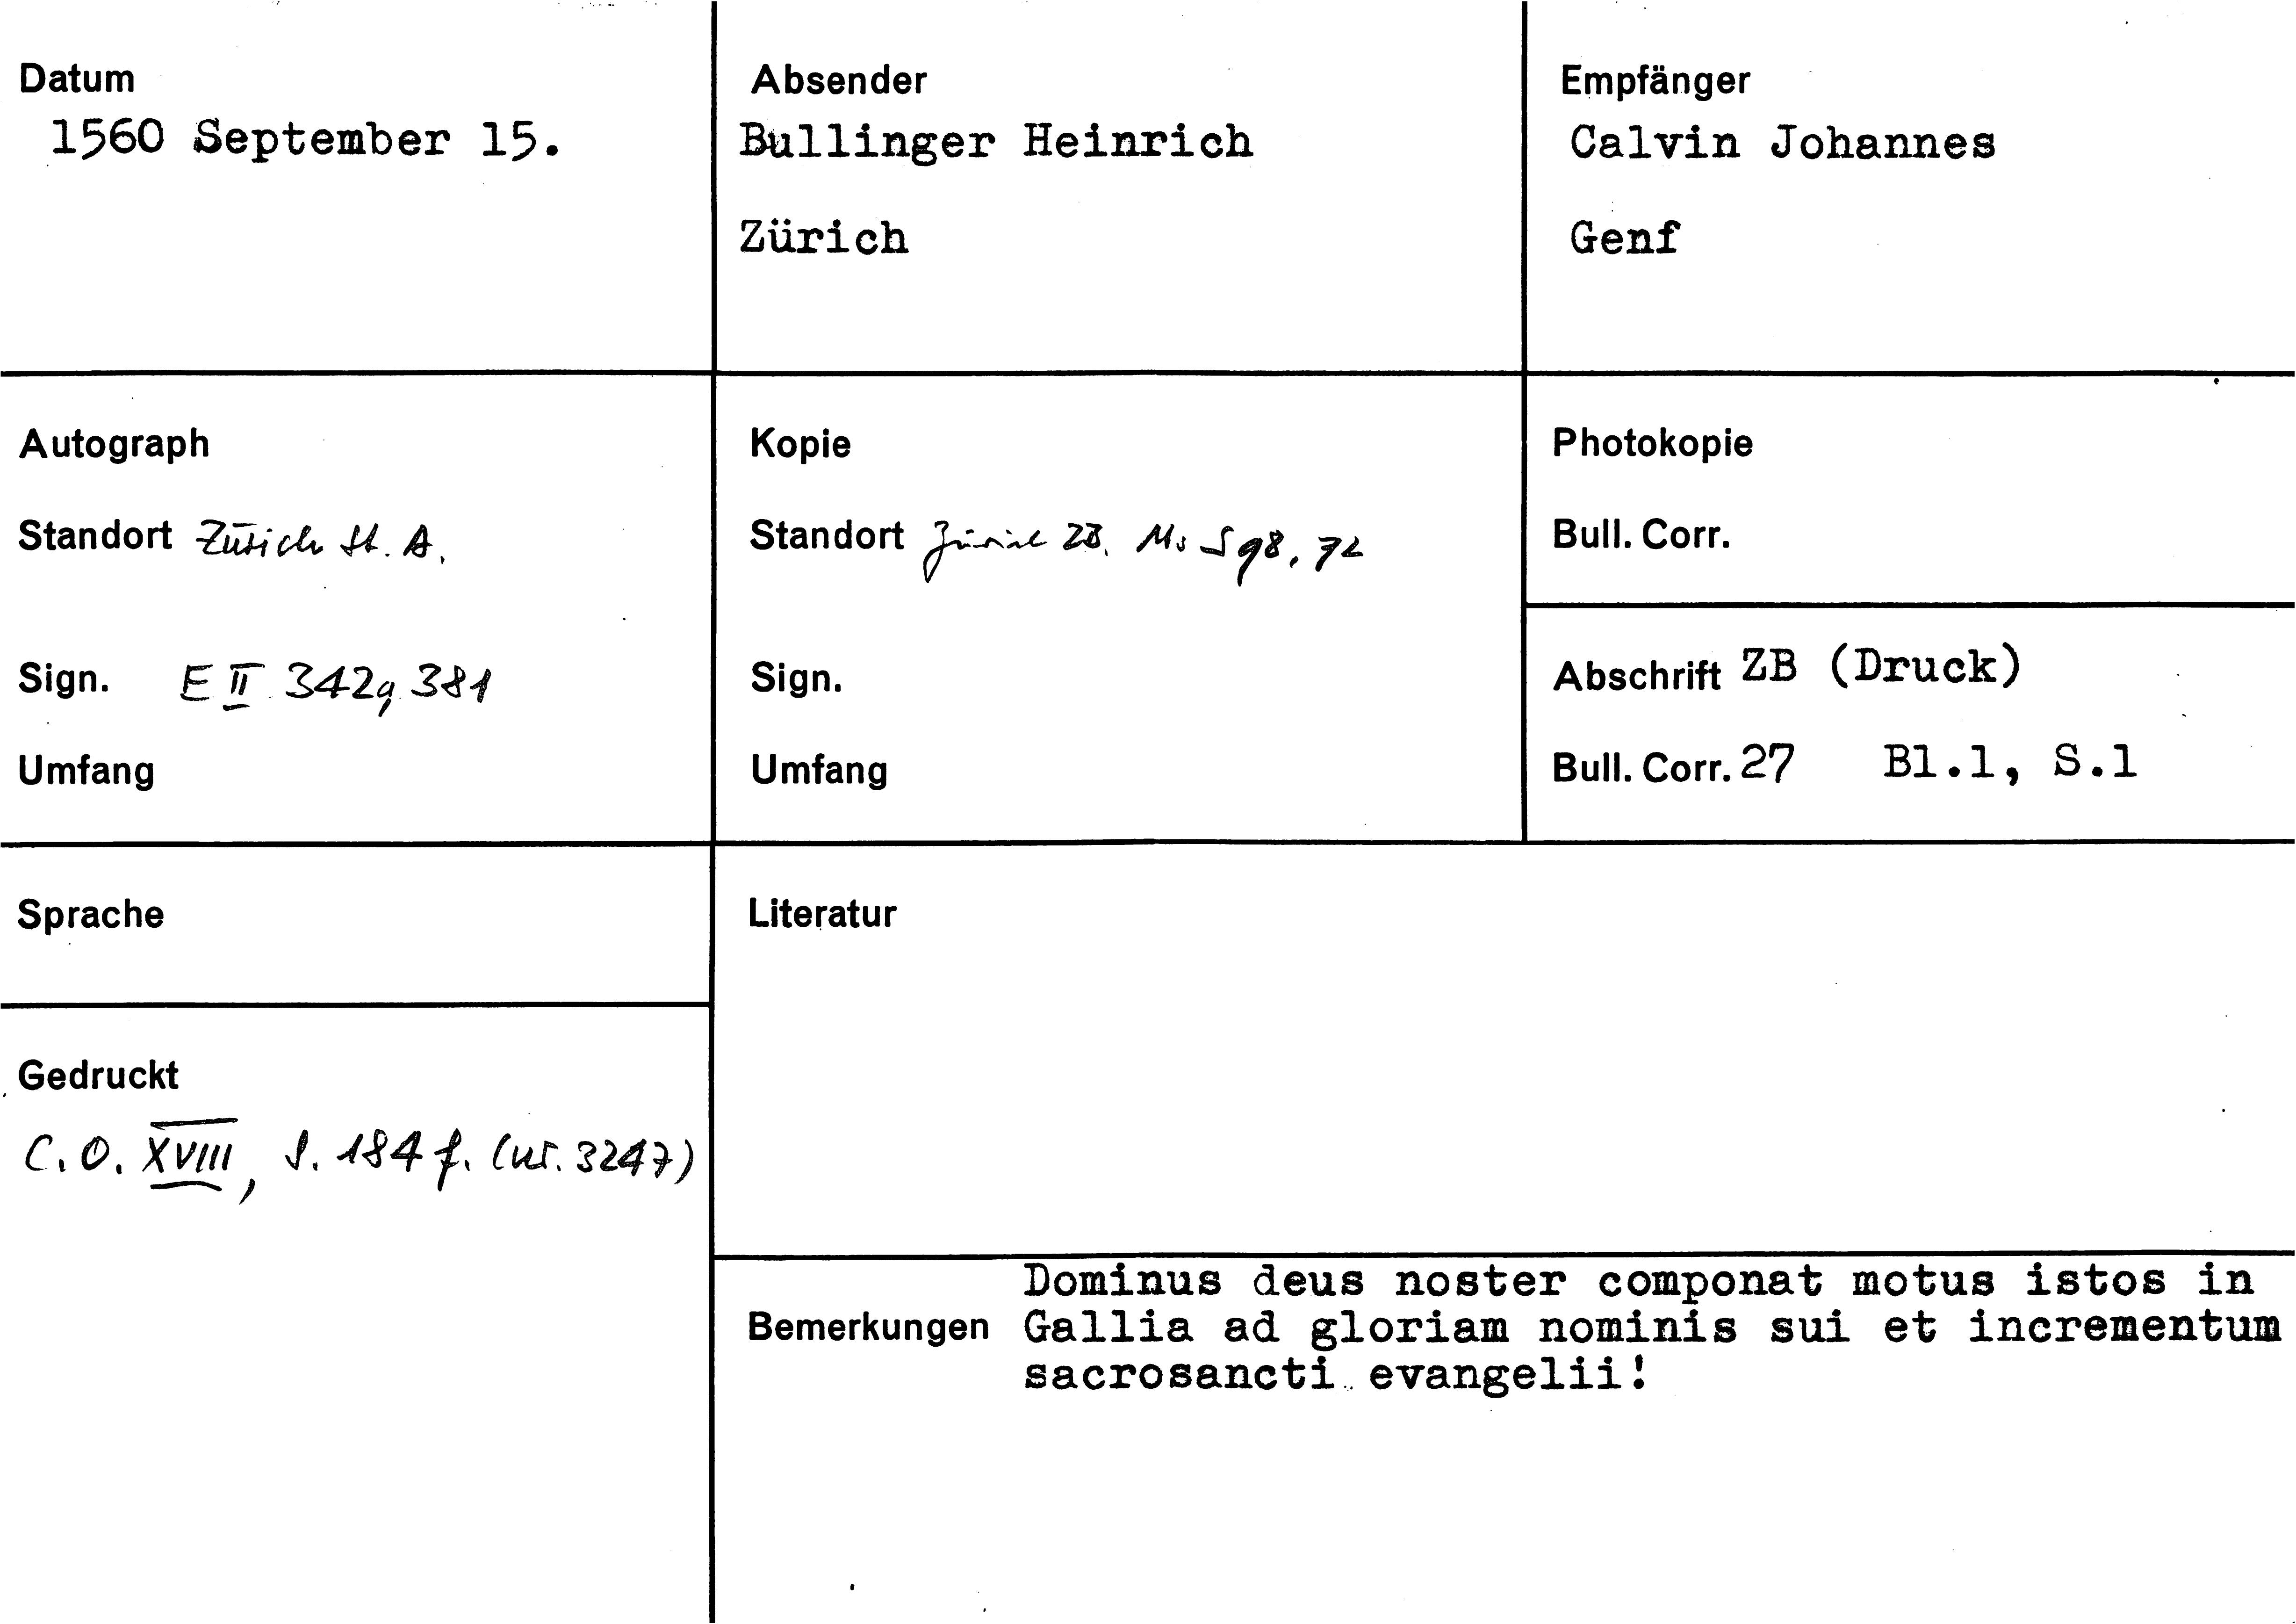 Datum
1560 September 15.
Absender
Bullinger Heinrich
Zürich
Empfänger
Calvin Johannes
Genf
Autograph
Standort Zürich St. A.
Sign. E II 342a, 381
Umfang
Kopie
Standort Zürich ZB. Ms S 98, 72
Sign.
Umfang
Photokopie
Bull. Corr.
Abschrift ZB (Druck)
Bull. Corr. 27 Bl.1, S.1
Sprache
Literatur
Gedruckt
C. O. XVIII, S. 184 f. (nr. 3247)
Bemerkungen
Dominus deus noster componat motus istos in
Gallia ad gloriam nominis sui et incrementum
sacrosancti evangelii!